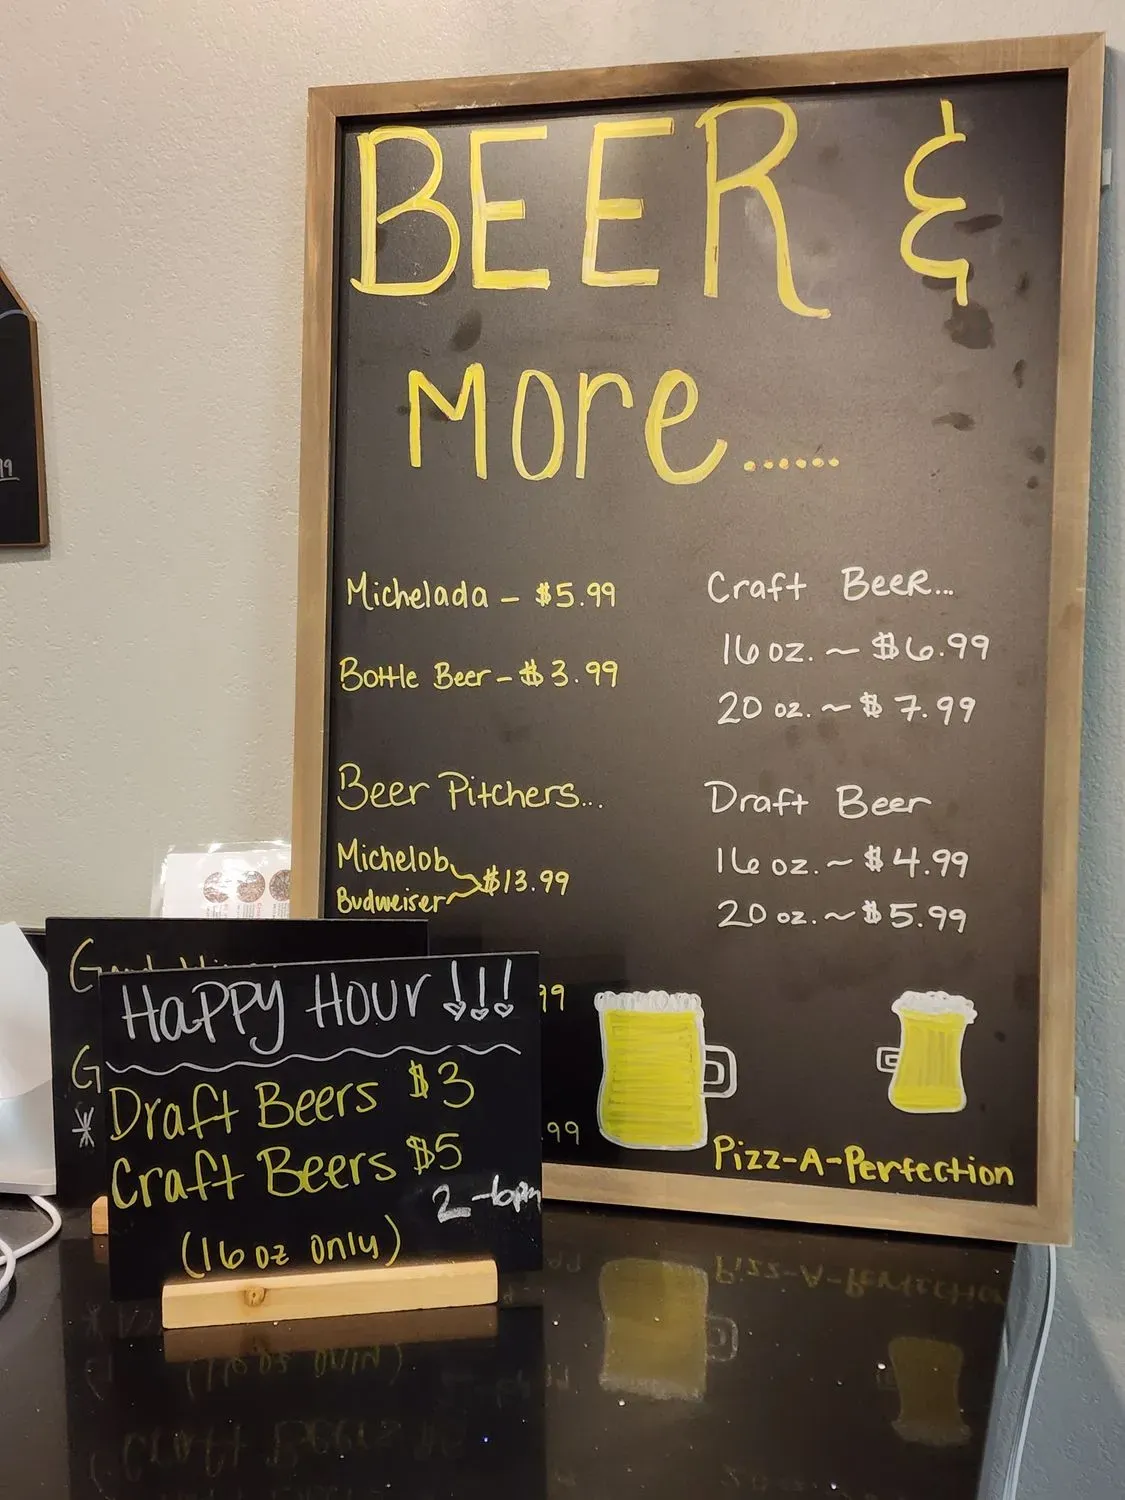 BEER &
More......
Michelada - $5.99
Bottle Beer - $3.99
Beer Pitchers...
Michelob
Budweiser
$13.99
99
.99
Craft Beer...
16 oz. ~ $6.99
20 oz. ~ $7.99
Draft Beer
16 oz. ~ $4.99
20 oz. ~ $5.99
Pizz-A-Perfection
Happy Hour !!!
Draft Beers $3
Craft Beers $5
2-6pm
(16 oz only)